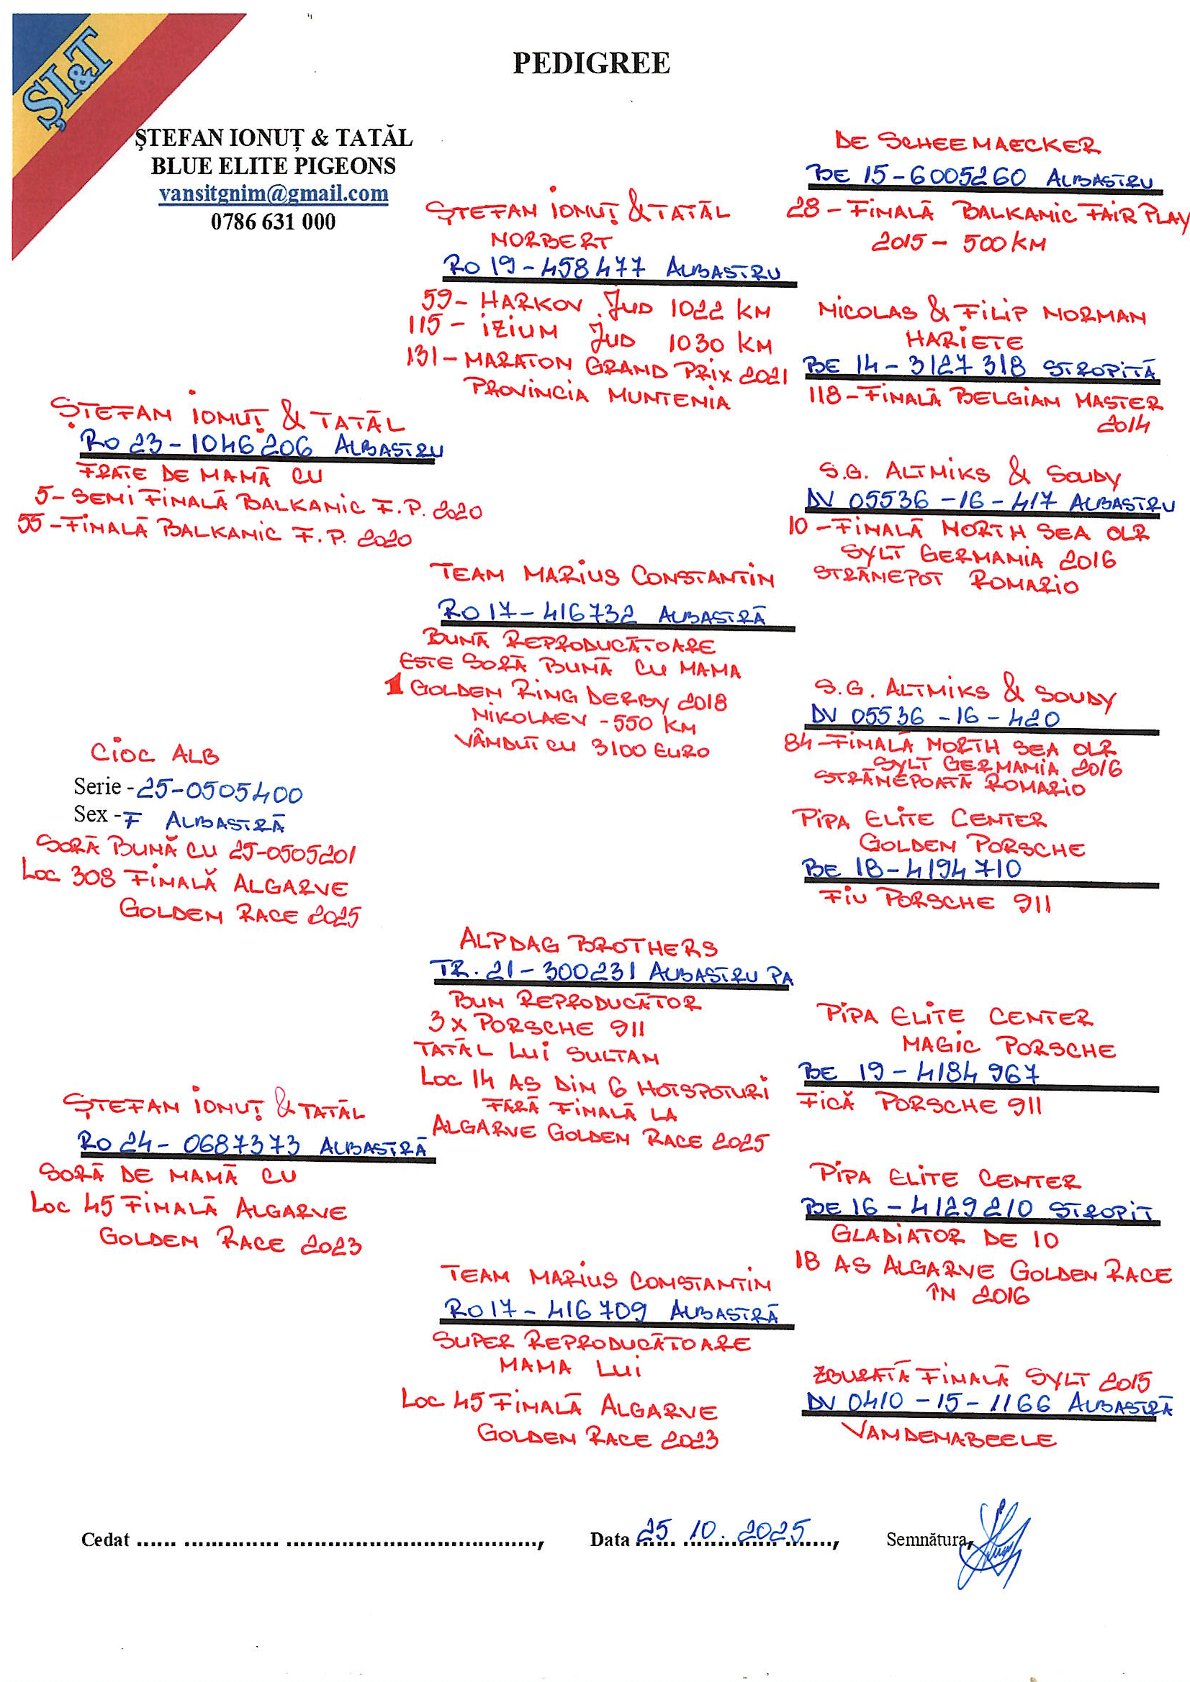 ȘI&T
PEDIGREE
ȘTEFAN IONUȚ & TATĂL
BLUE ELITE PIGEONS
vansitgnim@gmail.com
0786 631 000
ȘTEFAN IONUȚ & TATĂL
RO 23-1046206 ALBASTRU
FRATE DE MAMĂ CU
5-SEMIFINALĂ BALKANIC F.P. 2020
55-FINALĂ BALKANIC F.P. 2020
CIOC ALB
Serie - 25-0505400
Sex - F ALBASTRĂ
SORĂ BUNĂ CU 25-0505201
LOC 308 FINALĂ ALGARVE
GOLDEN RACE 2025
ȘTEFAN IONUȚ & TATĂL
RO 24-0687373 ALBASTRĂ
SORĂ DE MAMĂ CU
LOC 45 FINALĂ ALGARVE
GOLDEN RACE 2023
ȘTEFAN IONUȚ & TATĂL
NORBERT
RO 19-458477 ALBASTRU
59-HARKOV JUD 1022 KM
115-IZIUM JUD 1030 KM
131-MARATON GRAND PRIX 2021
PROVINCIA MUNTENIA
TEAM MARIUS CONSTANTIN
RO 17-416732 ALBASTRĂ
BUNĂ REPRODUCĂTOARE
ESTE SORĂ BUNĂ CU MAMA
1 GOLDEN RING DERBY 2018
NIKOLAEV -550 KM
VÂNDUT CU 3100 EURO
ALPDAG BROTHERS
TR. 21-300231 ALBASTRU PA
BUN REPRODUCĂTOR
3 X PORSCHE 911
TATĂL LUI SULTAN
LOC 14 AS DIN 6 HOTSPOTURI
FĂRĂ FINALĂ LA
ALGARVE GOLDEN RACE 2025
TEAM MARIUS CONSTANTIN
RO 17-416709 ALBASTRĂ
SUPER REPRODUCĂTOARE
MAMA LUI
LOC 45 FINALĂ ALGARVE
GOLDEN RACE 2023
DE SCHEEMAECKER
BE 15-6005260 ALBASTRU
28-FINALĂ BALKANIC FAIR PLAY
2015 - 500 KM
NICOLAS & FILIP NORMAN
HARIETE
BE 14-3127318 STROPITĂ
118-FINALĂ BELGIAN MASTER
2014
S.G. ALTMIKS & SOUDY
DV 05536-16-417 ALBASTRU
10-FINALĂ NORTH SEA OLR
SYLT GERMANIA 2016
STRĂNEPOT ROMARIO
S.G. ALTMIKS & SOUDY
DV 05536-16-420
84-FINALĂ NORTH SEA OLR
SYLT GERMANIA 2016
STRĂNEPOATĂ ROMARIO
PIPA ELITE CENTER
GOLDEN PORSCHE
BE 18-4194710
FIU PORSCHE 911
PIPA ELITE CENTER
MAGIC PORSCHE
BE 19-4184967
FIICĂ PORSCHE 911
PIPA ELITE CENTER
BE 16-4129210 STROPIT
GLADIATOR DE 10
18 AS ALGARVE GOLDEN RACE
ÎN 2016
ZBURATĂ FINALĂ SYLT 2015
DV 0410-15-1166 ALBASTRĂ
VANDENABEELE
Cedat ...... .............. ....................................., Data 25.10.2025, Semnătura,